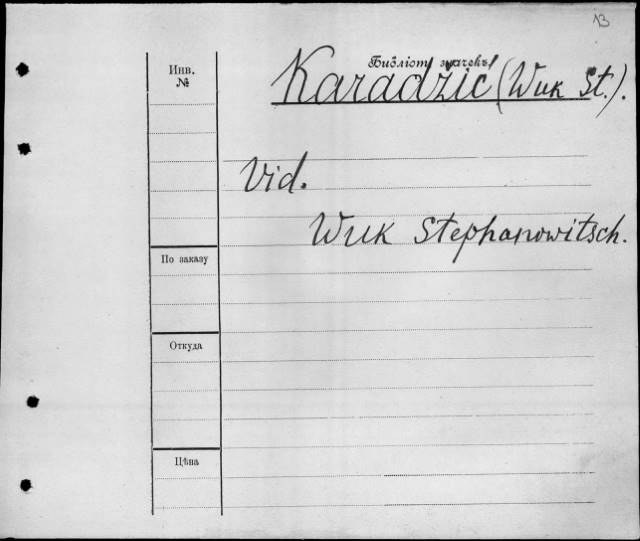 13
Библіот. значекъ
Karadžić (Wuk St.).
Инв.
№
Vid.
Wuk Stephanowitsch.
По заказу
Откуда
Цѣна